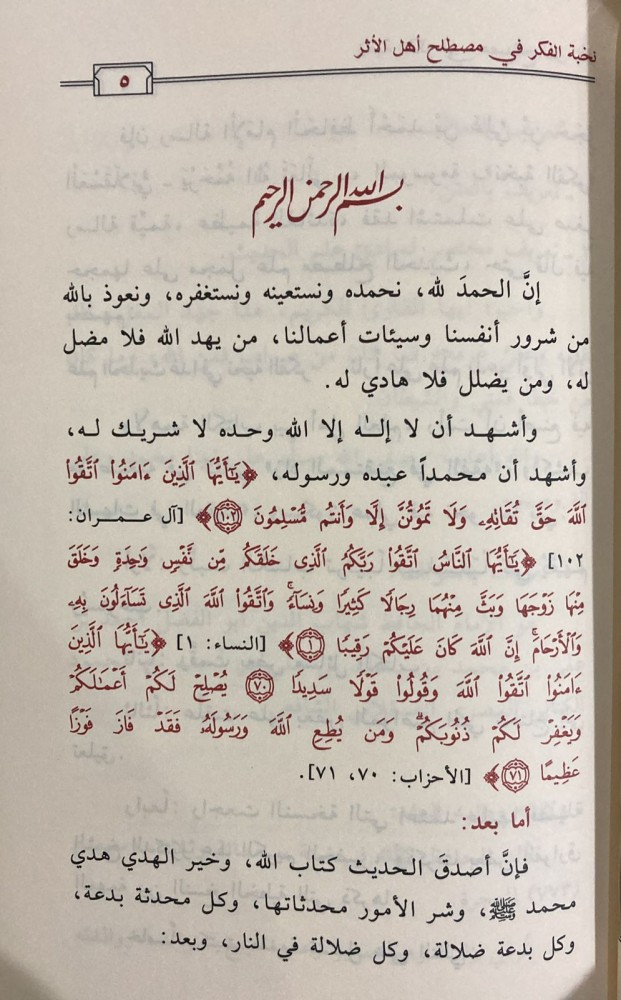 نخبة الفكر في مصطلح أهل الأثر
٥
بسم الله الرحمن الرحيم
إنَّ الحمدَ لله، نحمده ونستعينه ونستغفره، ونعوذ بالله
من شرور أنفسنا وسيئات أعمالنا، من يهد الله فلا مضل
له، ومن يضلل فلا هادي له.
وأشهد أن لا إلٰه إلا الله وحده لا شريك له،
وأشهد أن محمداً عبده ورسوله، ﴿يَٰٓأَيُّهَا ٱلَّذِينَ ءَامَنُوا۟ ٱتَّقُوا۟
ٱللَّهَ حَقَّ تُقَاتِهِۦ وَلَا تَمُوتُنَّ إِلَّا وَأَنتُم مُّسْلِمُونَ ١٠٢﴾ [آل عمران:
١٠٢] ﴿يَٰٓأَيُّهَا ٱلنَّاسُ ٱتَّقُوا۟ رَبَّكُمُ ٱلَّذِى خَلَقَكُم مِّن نَّفْسٍ وَٰحِدَةٍ وَخَلَقَ
مِنْهَا زَوْجَهَا وَبَثَّ مِنْهُمَا رِجَالًا كَثِيرًا وَنِسَآءً ۚ وَٱتَّقُوا۟ ٱللَّهَ ٱلَّذِى تَسَآءَلُونَ بِهِۦ
وَٱلْأَرْحَامَ ۚ إِنَّ ٱللَّهَ كَانَ عَلَيْكُمْ رَقِيبًا ١﴾ [النساء: ١] ﴿يَٰٓأَيُّهَا ٱلَّذِينَ
ءَامَنُوا۟ ٱتَّقُوا۟ ٱللَّهَ وَقُولُوا۟ قَوْلًا سَدِيدًا ٧٠ يُصْلِحْ لَكُمْ أَعْمَٰلَكُمْ
وَيَغْفِرْ لَكُمْ ذُنُوبَكُمْ ۗ وَمَن يُطِعِ ٱللَّهَ وَرَسُولَهُۥ فَقَدْ فَازَ فَوْزًا
عَظِيمًا ٧١﴾ [الأحزاب: ٧٠، ٧١].
أما بعد:
فإنَّ أصدقَ الحديث كتاب الله، وخير الهدي هدي
محمد ﷺ، وشر الأمور محدثاتها، وكل محدثة بدعة،
وكل بدعة ضلالة، وكل ضلالة في النار، وبعد: